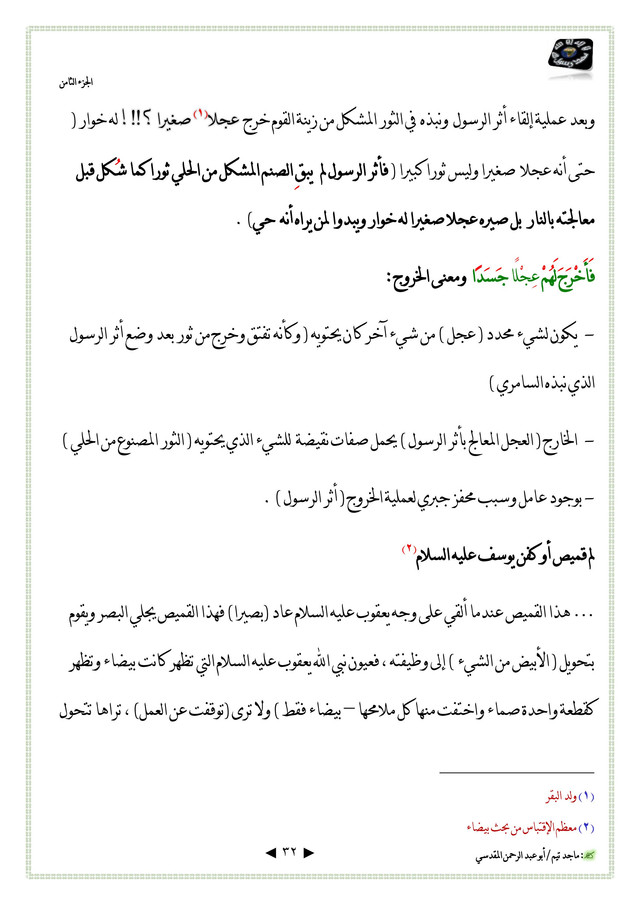 الجزء الثامن
وبعد عملية إلقاء أثر الرسول ونبذه في الثور المشكل من زينة القوم خرج عجلا(١) صغيرا ؟!! ! له خوار (
حتى أنه عجلا صغيرا وليس ثورا كبيرا ( فأثر الرسول لم يبقِ الصنم المشكل من الحلي ثورا كما شُكل قبل
معالجته بالنار بل صيره عجلا صغيرا له خوار ويبدوا لمن يراه أنه حي) .
فَأَخْرَجَ لَهُمْ عِجْلًا جَسَدًا ومعنى الخروج :
- يكون لشيء محدد ( عجل ) من شيء آخر كان يحتويه ( وكأنه تفتق وخرج من ثور بعد وضع أثر الرسول
الذي نبذه السامري )
- الخارج ( العجل المعالج بأثر الرسول ) يحمل صفات نقيضة للشيء الذي يحتويه ( الثور المصنوع من الحلي )
- بوجود عامل وسبب محفز جبري لعملية الخروج ( أثر الرسول ) .
لم قميص أو كفن يوسف عليه السلام(٢)
... هذا القميص عندما ألقي على وجه يعقوب عليه السلام عاد (بصيرا) فهذا القميص يجلي البصر ويقوم
بتحويل ( الأبيض من الشيء ) إلى وظيفته ، فعيون نبي الله يعقوب عليه السلام التي تظهر كانت بيضاء وتظهر
كقطعة واحدة صماء واختفت منها كل ملامحها – بيضاء فقط ) ولا ترى (توقفت عن العمل) ، تراها تتحول
(١) ولد البقر
(٢) معظم الإقتباس من بحث بيضاء
: ماجد تيم / أبو عبد الرحمن المقدسي
◄ ٣٢ ►